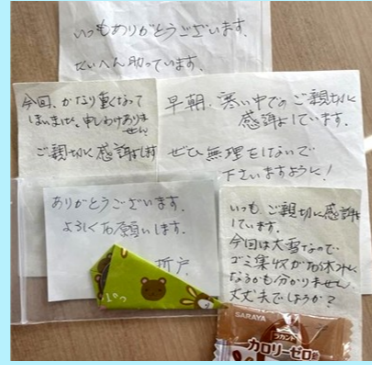 いつもありがとうございます。
たいへん助っています。
今回、かなり重くなって
しまいました。申しわけありま
せん。
ご親切に感謝します
早朝、寒い中でのご親切に
感謝しています。
ぜひ無理をしないで
下さいますように！
ありがとうございます。
よろしくお願いします。
戸
いつも、ご親切に感謝
しています。
今回は大雪なので
ゴミ集収がお休みに
なるかも分かりません
大丈夫でしょうか？
SARAYA
ラカント
カロリーゼロ飴